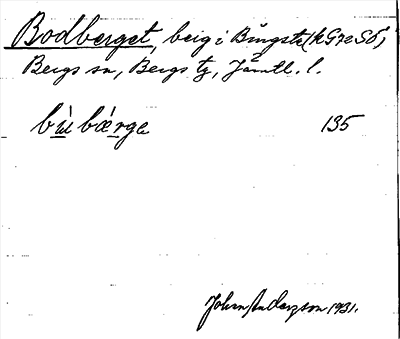 Bodberget, berg i Bingsta (k G 72 SÖ)
Bergs sn, Bergs tg, Jämtl. l.
bù bǽrge 135
John Andersson 1931.